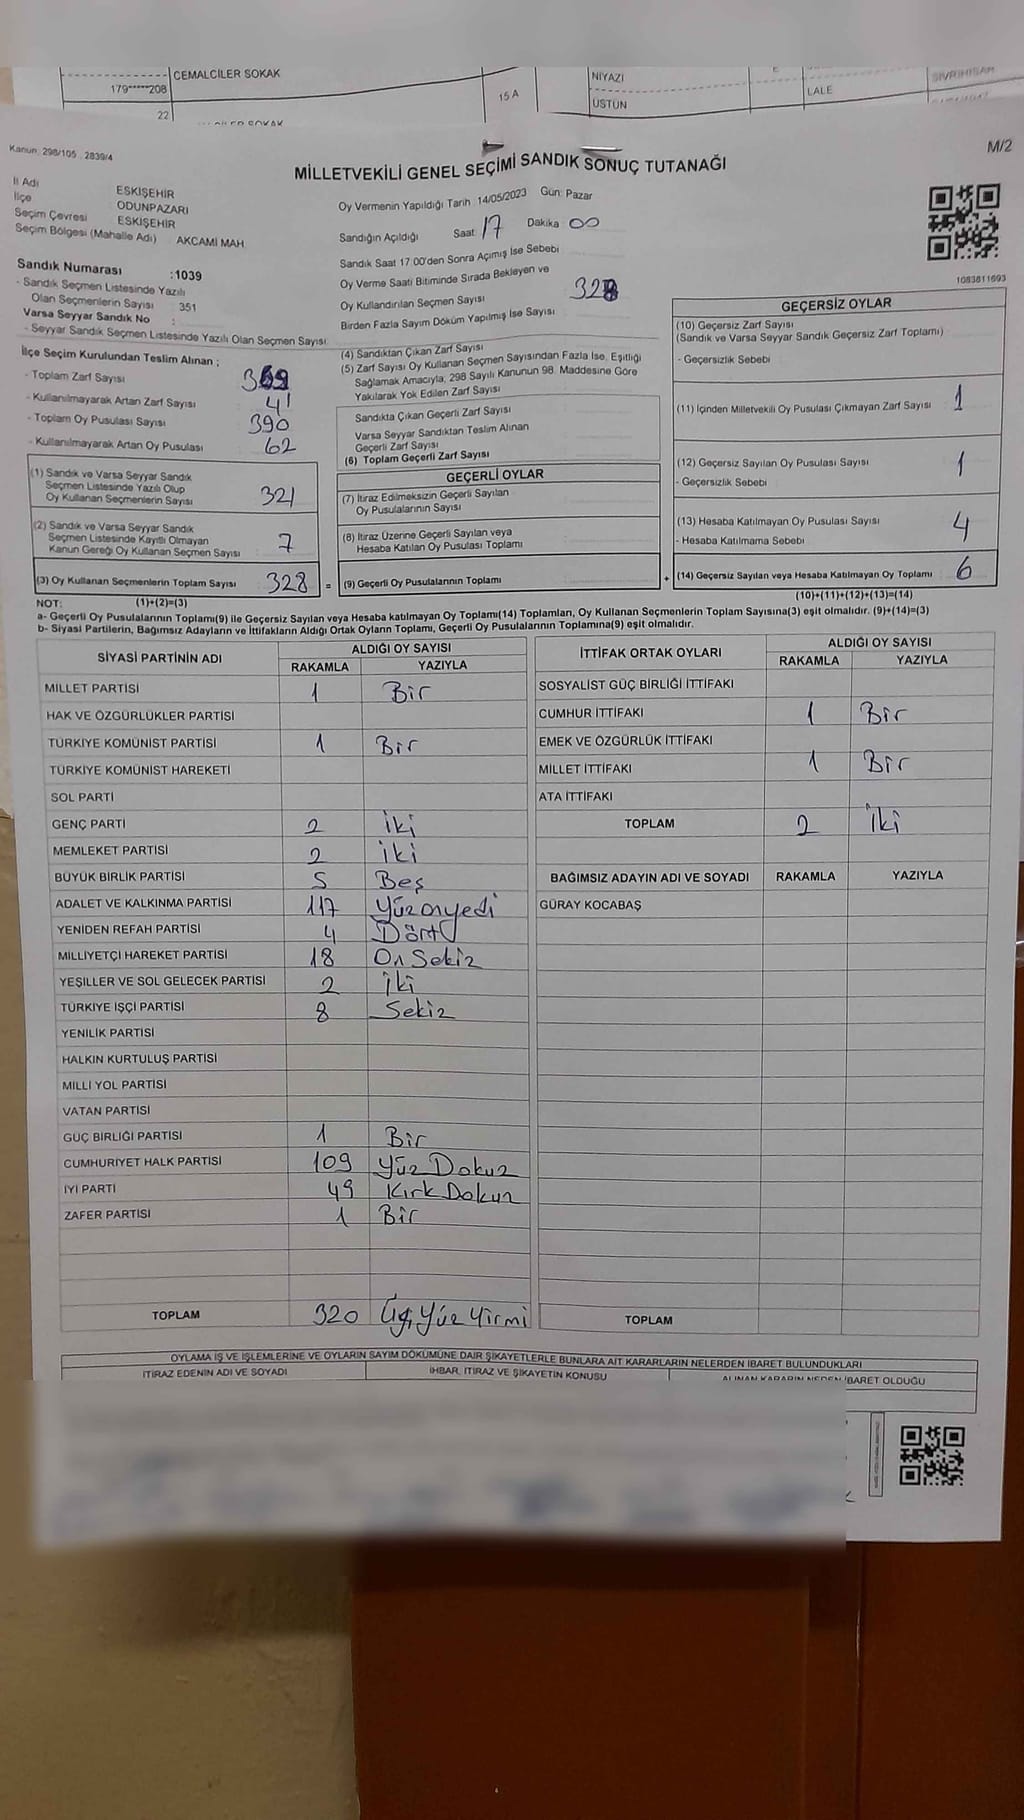 CEMALCİLER SOKAK
179*****208
22
15 A
NİYAZİ
ÜSTÜN
LALE
SİVRİHİSAR
Kanun: 298/105 2839/4
M/2
MİLLETVEKİLİ GENEL SEÇİMİ SANDIK SONUÇ TUTANAĞI
İl Adı ESKİŞEHİR
İlçe ODUNPAZARI
Seçim Çevresi ESKİŞEHİR
Seçim Bölgesi (Mahalle Adı) AKCAMİ MAH
Oy Vermenin Yapıldığı Tarih 14/05/2023 Gün: Pazar
Sandığın Açıldığı Saat 17 Dakika 00
Sandık Saat 17:00'den Sonra Açılmış İse Sebebi
Oy Verme Saati Bitiminde Sırada Bekleyen ve
Oy Kullandırılan Seçmen Sayısı 328
Birden Fazla Sayım Döküm Yapılmış İse Sayısı
1083611693
Sandık Numarası :1039
- Sandık Seçmen Listesinde Yazılı
Olan Seçmenlerin Sayısı 351
Varsa Seyyar Sandık No :
- Seyyar Sandık Seçmen Listesinde Yazılı Olan Seçmen Sayısı:
İlçe Seçim Kurulundan Teslim Alınan ;
- Toplam Zarf Sayısı 369
- Kullanılmayarak Artan Zarf Sayısı 41
- Toplam Oy Pusulası Sayısı 390
- Kullanılmayarak Artan Oy Pusulası 62
(1) Sandık ve Varsa Seyyar Sandık
Seçmen Listesinde Yazılı Olup
Oy Kullanan Seçmenlerin Sayısı 321
(2) Sandık ve Varsa Seyyar Sandık
Seçmen Listesinde Kayıtlı Olmayan
Kanun Gereği Oy Kullanan Seçmen Sayısı 7
(3) Oy Kullanan Seçmenlerin Toplam Sayısı 328 =
(1)+(2)=(3)
(4) Sandıktan Çıkan Zarf Sayısı
(5) Zarf Sayısı Oy Kullanan Seçmen Sayısından Fazla İse, Eşitliği
Sağlamak Amacıyla, 298 Sayılı Kanunun 98. Maddesine Göre
Yakılarak Yok Edilen Zarf Sayısı
Sandıkta Çıkan Geçerli Zarf Sayısı
Varsa Seyyar Sandıktan Teslim Alınan
Geçerli Zarf Sayısı
(6) Toplam Geçerli Zarf Sayısı
GEÇERLİ OYLAR
(7) İtiraz Edilmeksizin Geçerli Sayılan
Oy Pusulalarının Sayısı
(8) İtiraz Üzerine Geçerli Sayılan veya
Hesaba Katılan Oy Pusulası Toplamı
(9) Geçerli Oy Pusulalarının Toplamı +
GEÇERSİZ OYLAR
(10) Geçersiz Zarf Sayısı
(Sandık ve Varsa Seyyar Sandık Geçersiz Zarf Toplamı)
- Geçersizlik Sebebi
(11) İçinden Milletvekili Oy Pusulası Çıkmayan Zarf Sayısı 1
(12) Geçersiz Sayılan Oy Pusulası Sayısı 1
- Geçersizlik Sebebi
(13) Hesaba Katılmayan Oy Pusulası Sayısı 4
- Hesaba Katılmama Sebebi
(14) Geçersiz Sayılan veya Hesaba Katılmayan Oy Toplamı 6
(10)+(11)+(12)+(13)=(14)
NOT:
a- Geçerli Oy Pusulalarının Toplamı(9) ile Geçersiz Sayılan veya Hesaba katılmayan Oy Toplamı(14) Toplamları, Oy Kullanan Seçmenlerin Toplam Sayısına(3) eşit olmalıdır. (9)+(14)=(3)
b- Siyasi Partilerin, Bağımsız Adayların ve İttifakların Aldığı Ortak Oyların Toplamı, Geçerli Oy Pusulalarının Toplamına(9) eşit olmalıdır.
SİYASİ PARTİNİN ADI ALDIĞI OY SAYISI
RAKAMLA YAZIYLA
MİLLET PARTİSİ 1 Bir
HAK VE ÖZGÜRLÜKLER PARTİSİ
TÜRKİYE KOMÜNİST PARTİSİ 1 Bir
TÜRKİYE KOMÜNİST HAREKETİ
SOL PARTİ
GENÇ PARTİ 2 İki
MEMLEKET PARTİSİ 2 İki
BÜYÜK BİRLİK PARTİSİ 5 Beş
ADALET VE KALKINMA PARTİSİ 117 Yüzonyedi
YENİDEN REFAH PARTİSİ 4 Dört
MİLLİYETÇİ HAREKET PARTİSİ 18 On Sekiz
YEŞİLLER VE SOL GELECEK PARTİSİ 2 İki
TÜRKİYE İŞÇİ PARTİSİ 8 Sekiz
YENİLİK PARTİSİ
HALKIN KURTULUŞ PARTİSİ
MİLLİ YOL PARTİSİ
VATAN PARTİSİ
GÜÇ BİRLİĞİ PARTİSİ 1 Bir
CUMHURİYET HALK PARTİSİ 109 Yüz Dokuz
İYİ PARTİ 49 Kırk Dokuz
ZAFER PARTİSİ 1 Bir
TOPLAM 320 Üç Yüz Yirmi
İTTİFAK ORTAK OYLARI ALDIĞI OY SAYISI
RAKAMLA YAZIYLA
SOSYALİST GÜÇ BİRLİĞİ İTTİFAKI
CUMHUR İTTİFAKI 1 Bir
EMEK VE ÖZGÜRLÜK İTTİFAKI
MİLLET İTTİFAKI 1 Bir
ATA İTTİFAKI
TOPLAM 2 İki
BAĞIMSIZ ADAYIN ADI VE SOYADI RAKAMLA YAZIYLA
GÜRAY KOCABAŞ
TOPLAM
OYLAMA İŞ VE İŞLEMLERİNE VE OYLARIN SAYIM DÖKÜMÜNE DAİR ŞİKAYETLERLE BUNLARA AİT KARARLARIN NELERDEN İBARET BULUNDUKLARI
İTİRAZ EDENİN ADI VE SOYADI İHBAR, İTİRAZ VE ŞİKAYETİN KONUSU ALINAN KARARIN NEDEN İBARET OLDUĞU